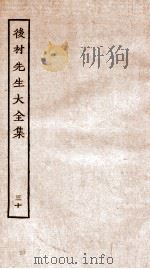 後村先生大全集
三十
mtoou.info